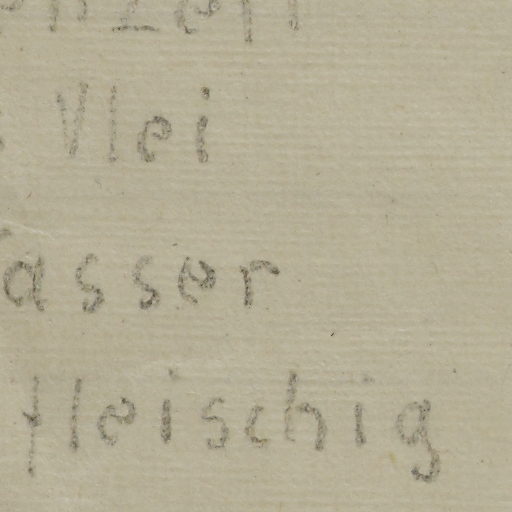 Vlei
asser
fleischig